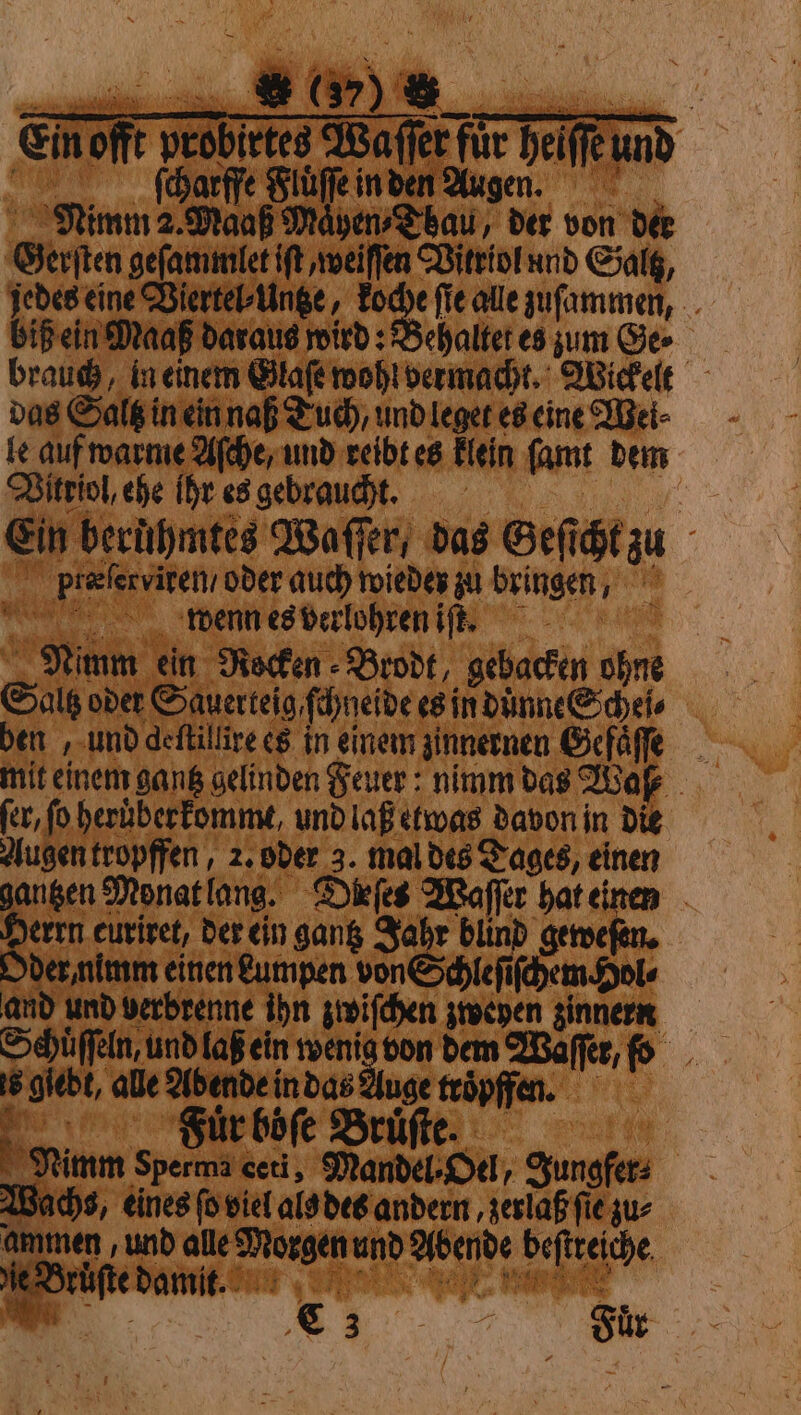 (37)
Ein offt probirtes Waſſer fuͤr heiſſe und
ſcharffe Fluͤſſe in den Augen.
Nimm 2. Maaß Maͤyen-Thau, der von der
Gerſten geſammlet iſt, weiſſen Vitriol und Saltz,
jedes eine Viertel-Untze, koche ſie alle zuſammen,
biß ein Maaß daraus wird: Behaltet es zum Ge-
brauch, in einem Glaſe wohl vermacht. Wickelt
das Saltz in ein naß Tuch, und leget es eine Wei-
le auf warme Aſche, und reibt es klein ſamt dem
Vitriol, ehe ihr es gebraucht.
Ein beruͤhmtes Waſſer, das Geſicht zu
præſerviren, oder auch wieder zu bringen,
wenn es verlohren iſt.
Nimm ein Rocken-Brodt, gebacken ohne
Saltz oder Sauerteig, ſchneide es in duͤnne Schei-
ben, und deſtillire es in einem zinnernen Gefaͤſſe
mit einem gantz gelinden Feuer: nimm das Waſ-
ſer, ſo heruͤberkommt, und laß etwas davon in die
Augen tropffen, 2. oder 3. mal des Tages, einen
gantzen Monat lang. Dieſes Waſſer hat einen
Herrn curiret, der ein gantz Jahr blind geweſen.
Oder, nimm einen Lumpen von Schleſiſchem Hol-
land und verbrenne ihn zwiſchen zweyen zinnern
Schuͤſſeln, und laß ein wenig von dem Waſſer, ſo
es giebt, alle Abende in das Auge troͤpffen.
Fuͤr boͤſe Bruͤſte.
Nimm Sperma ceti, Mandel-Oel, Jungfer-
Wachs, eines ſo viel als des andern, zerlaß ſie zu-
ammen, und alle Morgen und Abende beſtreiche
die Bruͤſte damit.
C 3 Fuͤr